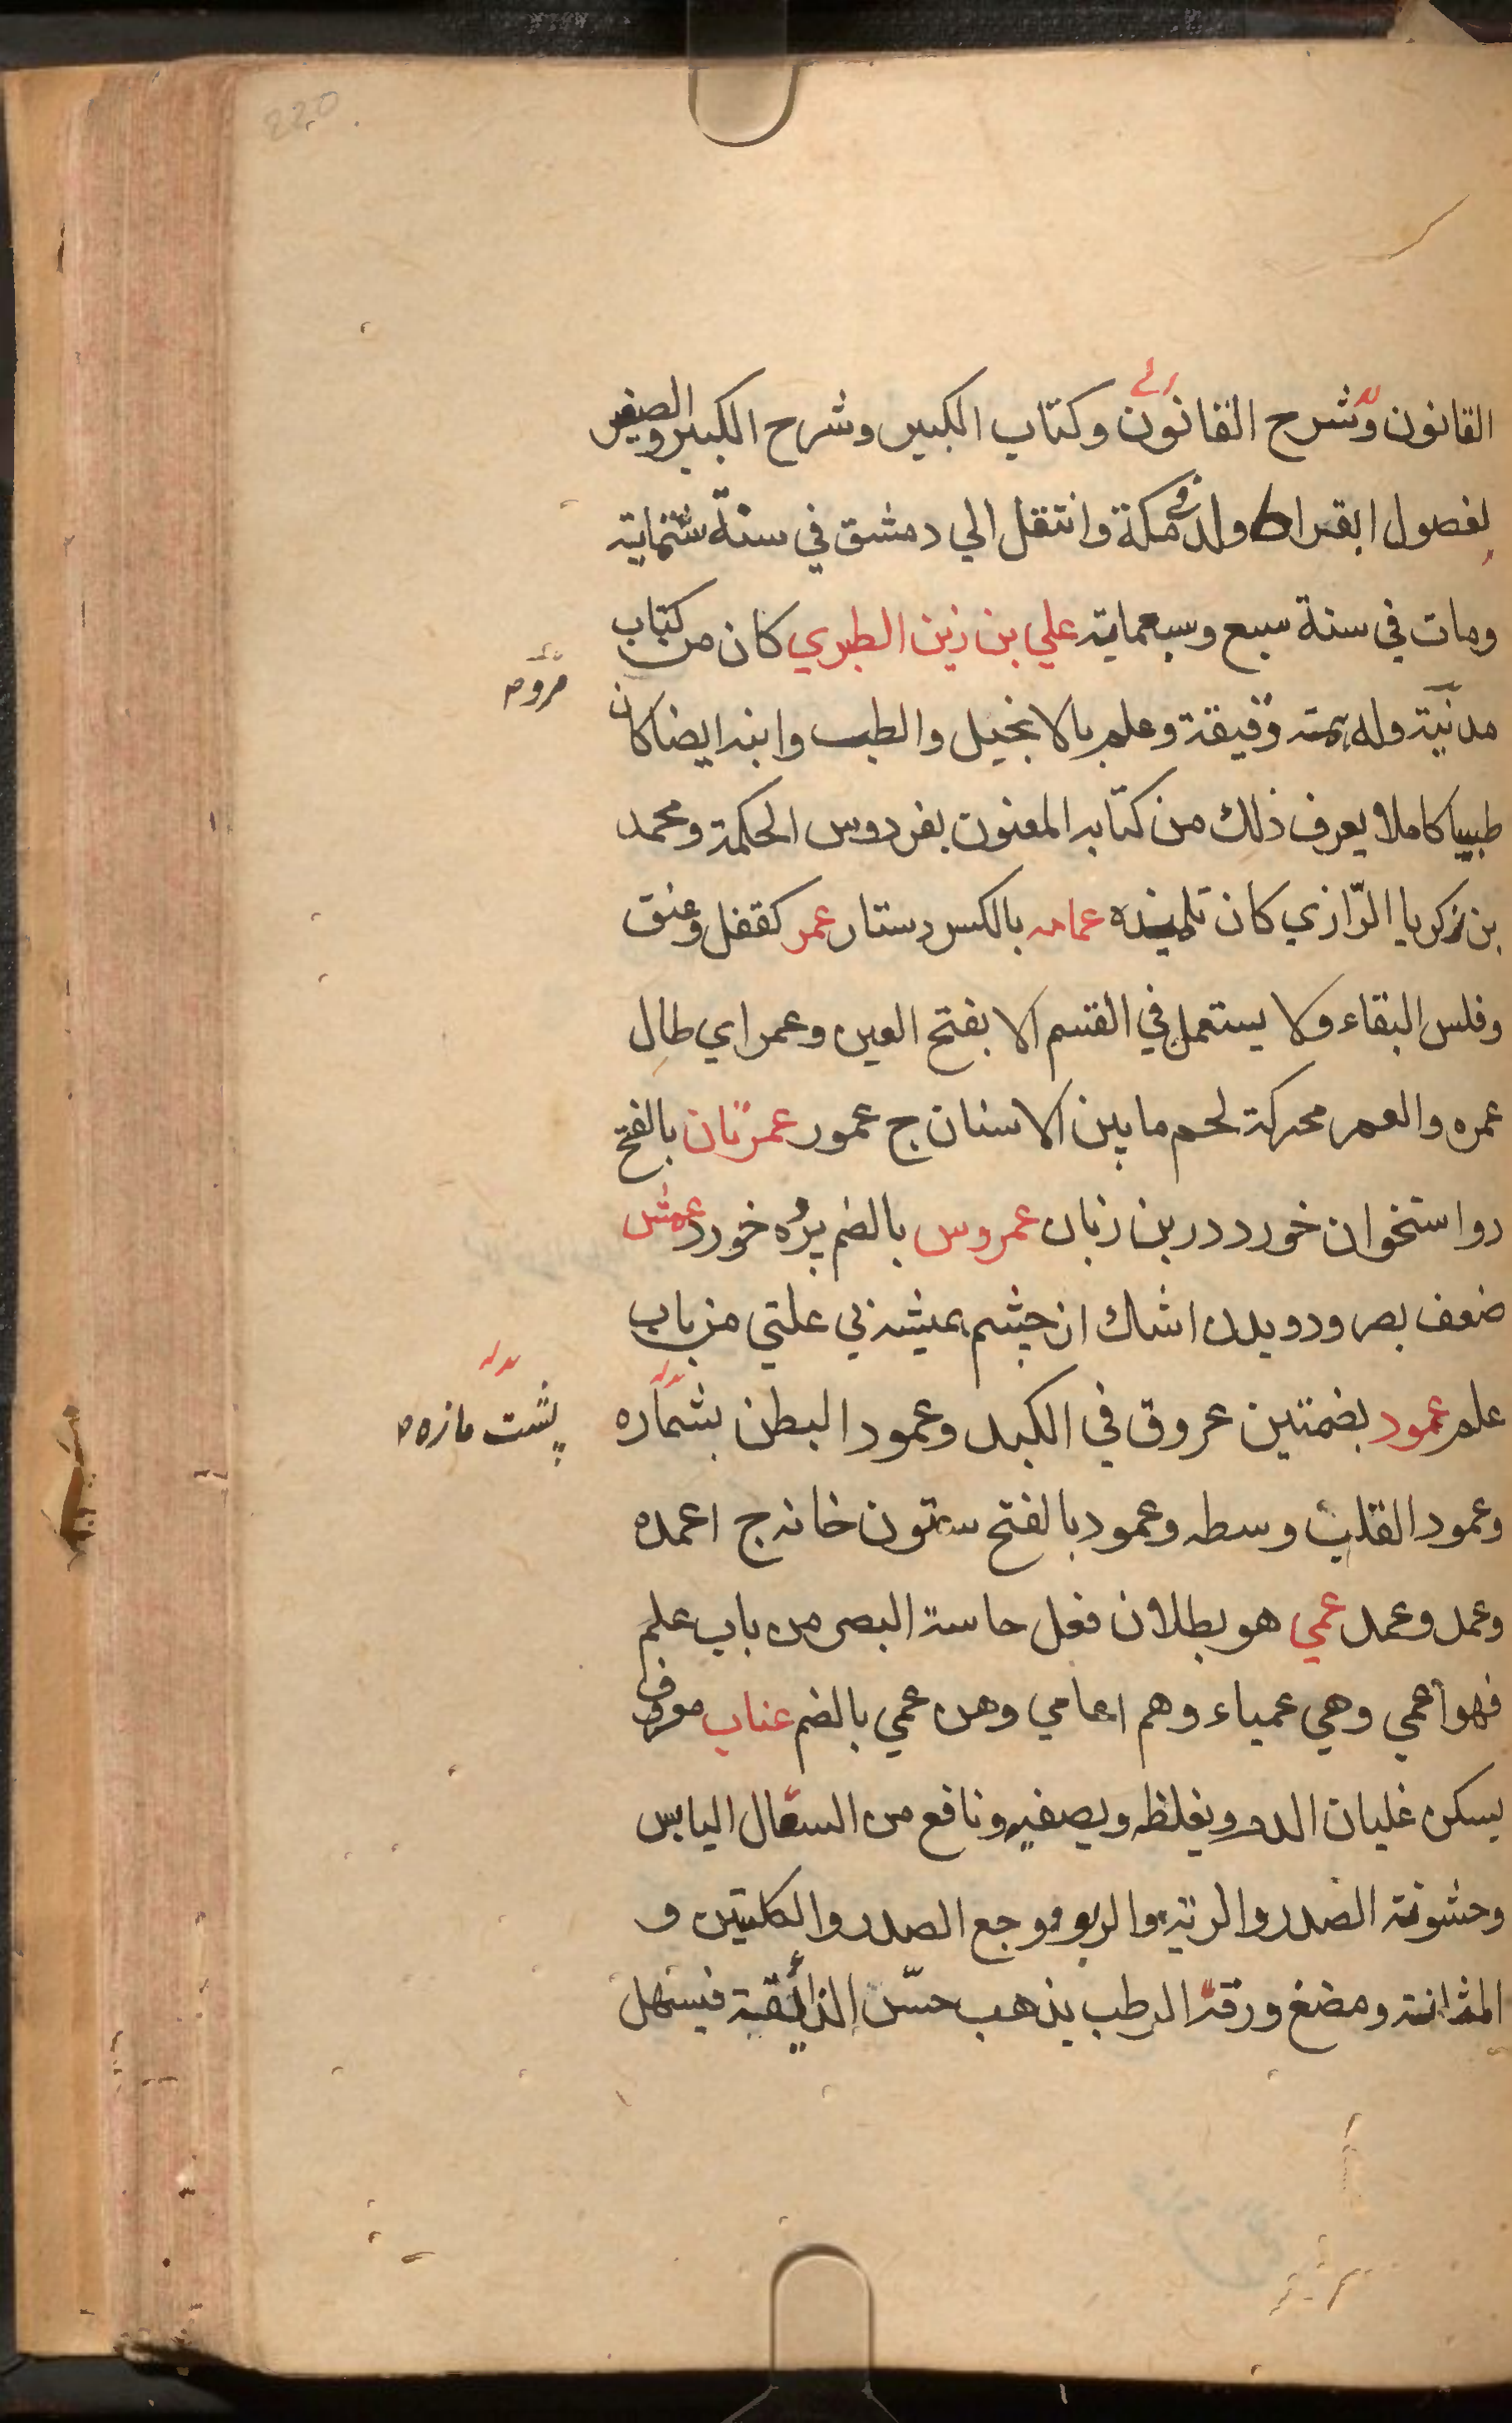 220
القانون وشرح القانون وكتاب الكبير وشرح الكبير والصغير
لفصول ابقراط ولد في مكة وانتقل الي دمشق في سنة ستماية
ومات في سنة سبع وسبعماية علي بن زين الطبري كان من كتاب
مدنيّة وله همة دقيقة وعلم بالانجيل والطب وابنه ايضا كان
طبيبا كاملا يعرف ذلك من كتابه المعنون بفردوس الحكمة ومحمد
بن زكريا الرّازي كان تلميذه عمامه بالكسر دستار عمر كقفل وعنق
وفلس البقاء ولا يستعمل في القسم الا بفتح العين وعمر اي طال
عمره والعمر محركة لحم ما بين الاسنان ج عمور عمرتان بالفتح
دو استخوان خورد در بن زبان عمروس بالضم برّه خورد عمش
ضعف بصر ودويدن اشك از چشم هميشه بي علتي من باب
علم عمود بضمتين عروق في الكبد وعمود البطن بشماره
پشت مازه
وعمود القلب وسطه وعمود بالفتح ستون خانه ج اعمده
وعمد وعمد عمي هو بطلان فعل حاسة البصر من باب علم
فهو اعمي وهي عمياء وهم اعامي وهن عمي بالضم عناب معرف
يسكن غليان الدم ويغلظه ويصفيه ونافع من السعال اليابس
وخشونة الصدر والرية والربو ووجع الصدر والكليتين و
المثانة ومضغ ورقه الرطب يذهب حسّ الذائقة فيسهل